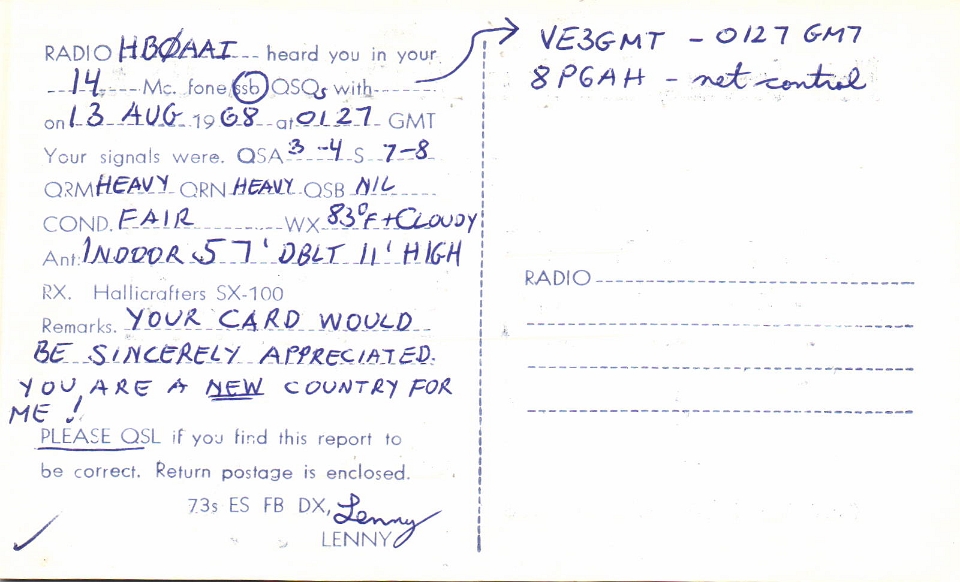 RADIO HBØAAI heard you in your
14 Mc. fone ssb QSOs with
on 13 AUG 1968 at 0127 GMT
Your signals were. QSA 3-4 S 7-8
QRM HEAVY QRN HEAVY QSB NIL
COND. FAIR WX 83°F + CLOUDY
Ant: INDOOR 57' DBLT 11' HIGH
RX. Hallicrafters SX-100
Remarks. YOUR CARD WOULD
BE SINCERELY APPRECIATED.
YOU, ARE A NEW COUNTRY FOR
ME !
PLEASE QSL if you find this report to
be correct. Return postage is enclosed.
73s ES FB DX, Lenny
LENNY
VE3GMT - 0127 GMT
8P6AH - net control
RADIO